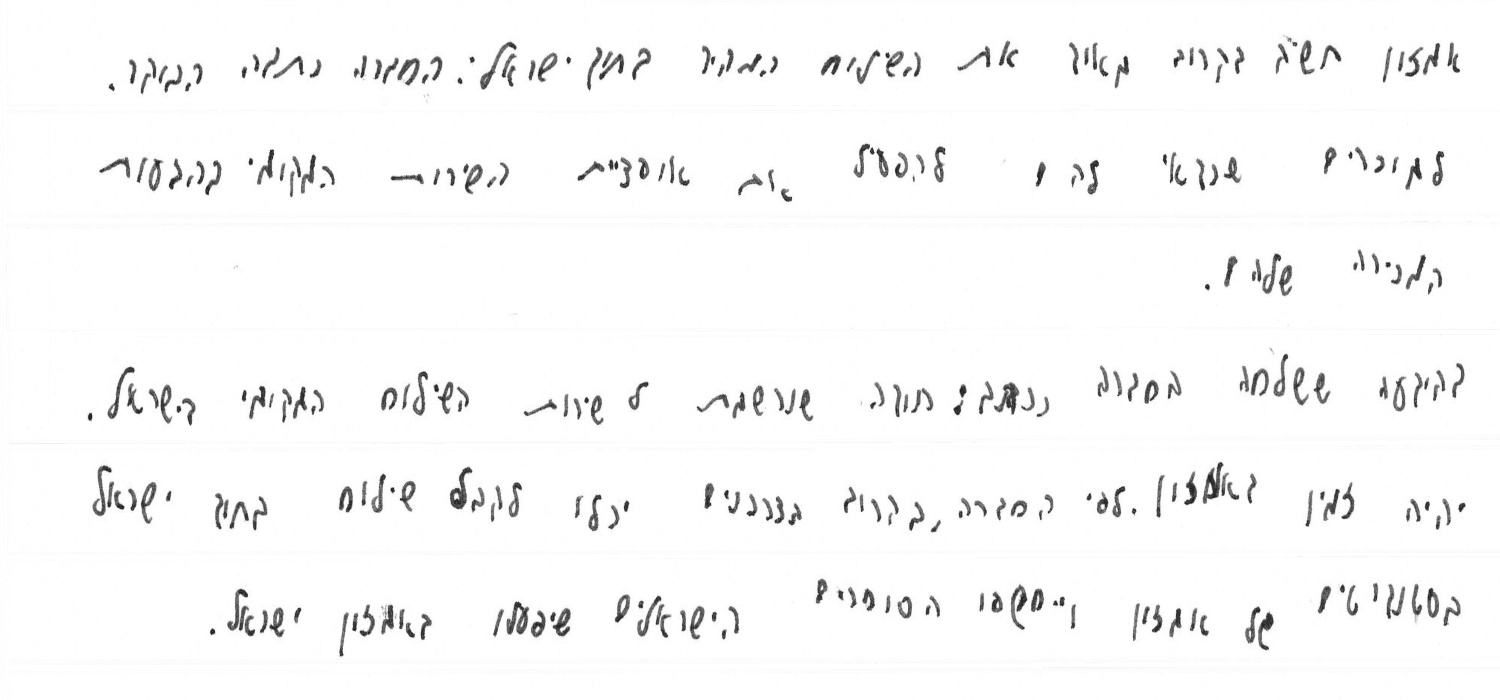 אמזון תשיג בקרוב מאוד את השילוח המהיר בתוך ישראל: החברה נתנה הבוקר.
למוכרים שכדאי להם להפעיל את אופציית השירות המקומי בהצעות
המכירה שלהם.
בהודעה ששלחה החברה נכתב: תודה שנרשמת לשירות השילוח המקומי בישראל.
יהיה זמין באמזון. לפי החברה, בקרוב הצרכנים יוכלו לקבל שילוח בתוך ישראל
בסטנדרטים של אמזון וייחשפו הסוחרים הישראלים שיפעלו באמזון ישראל.